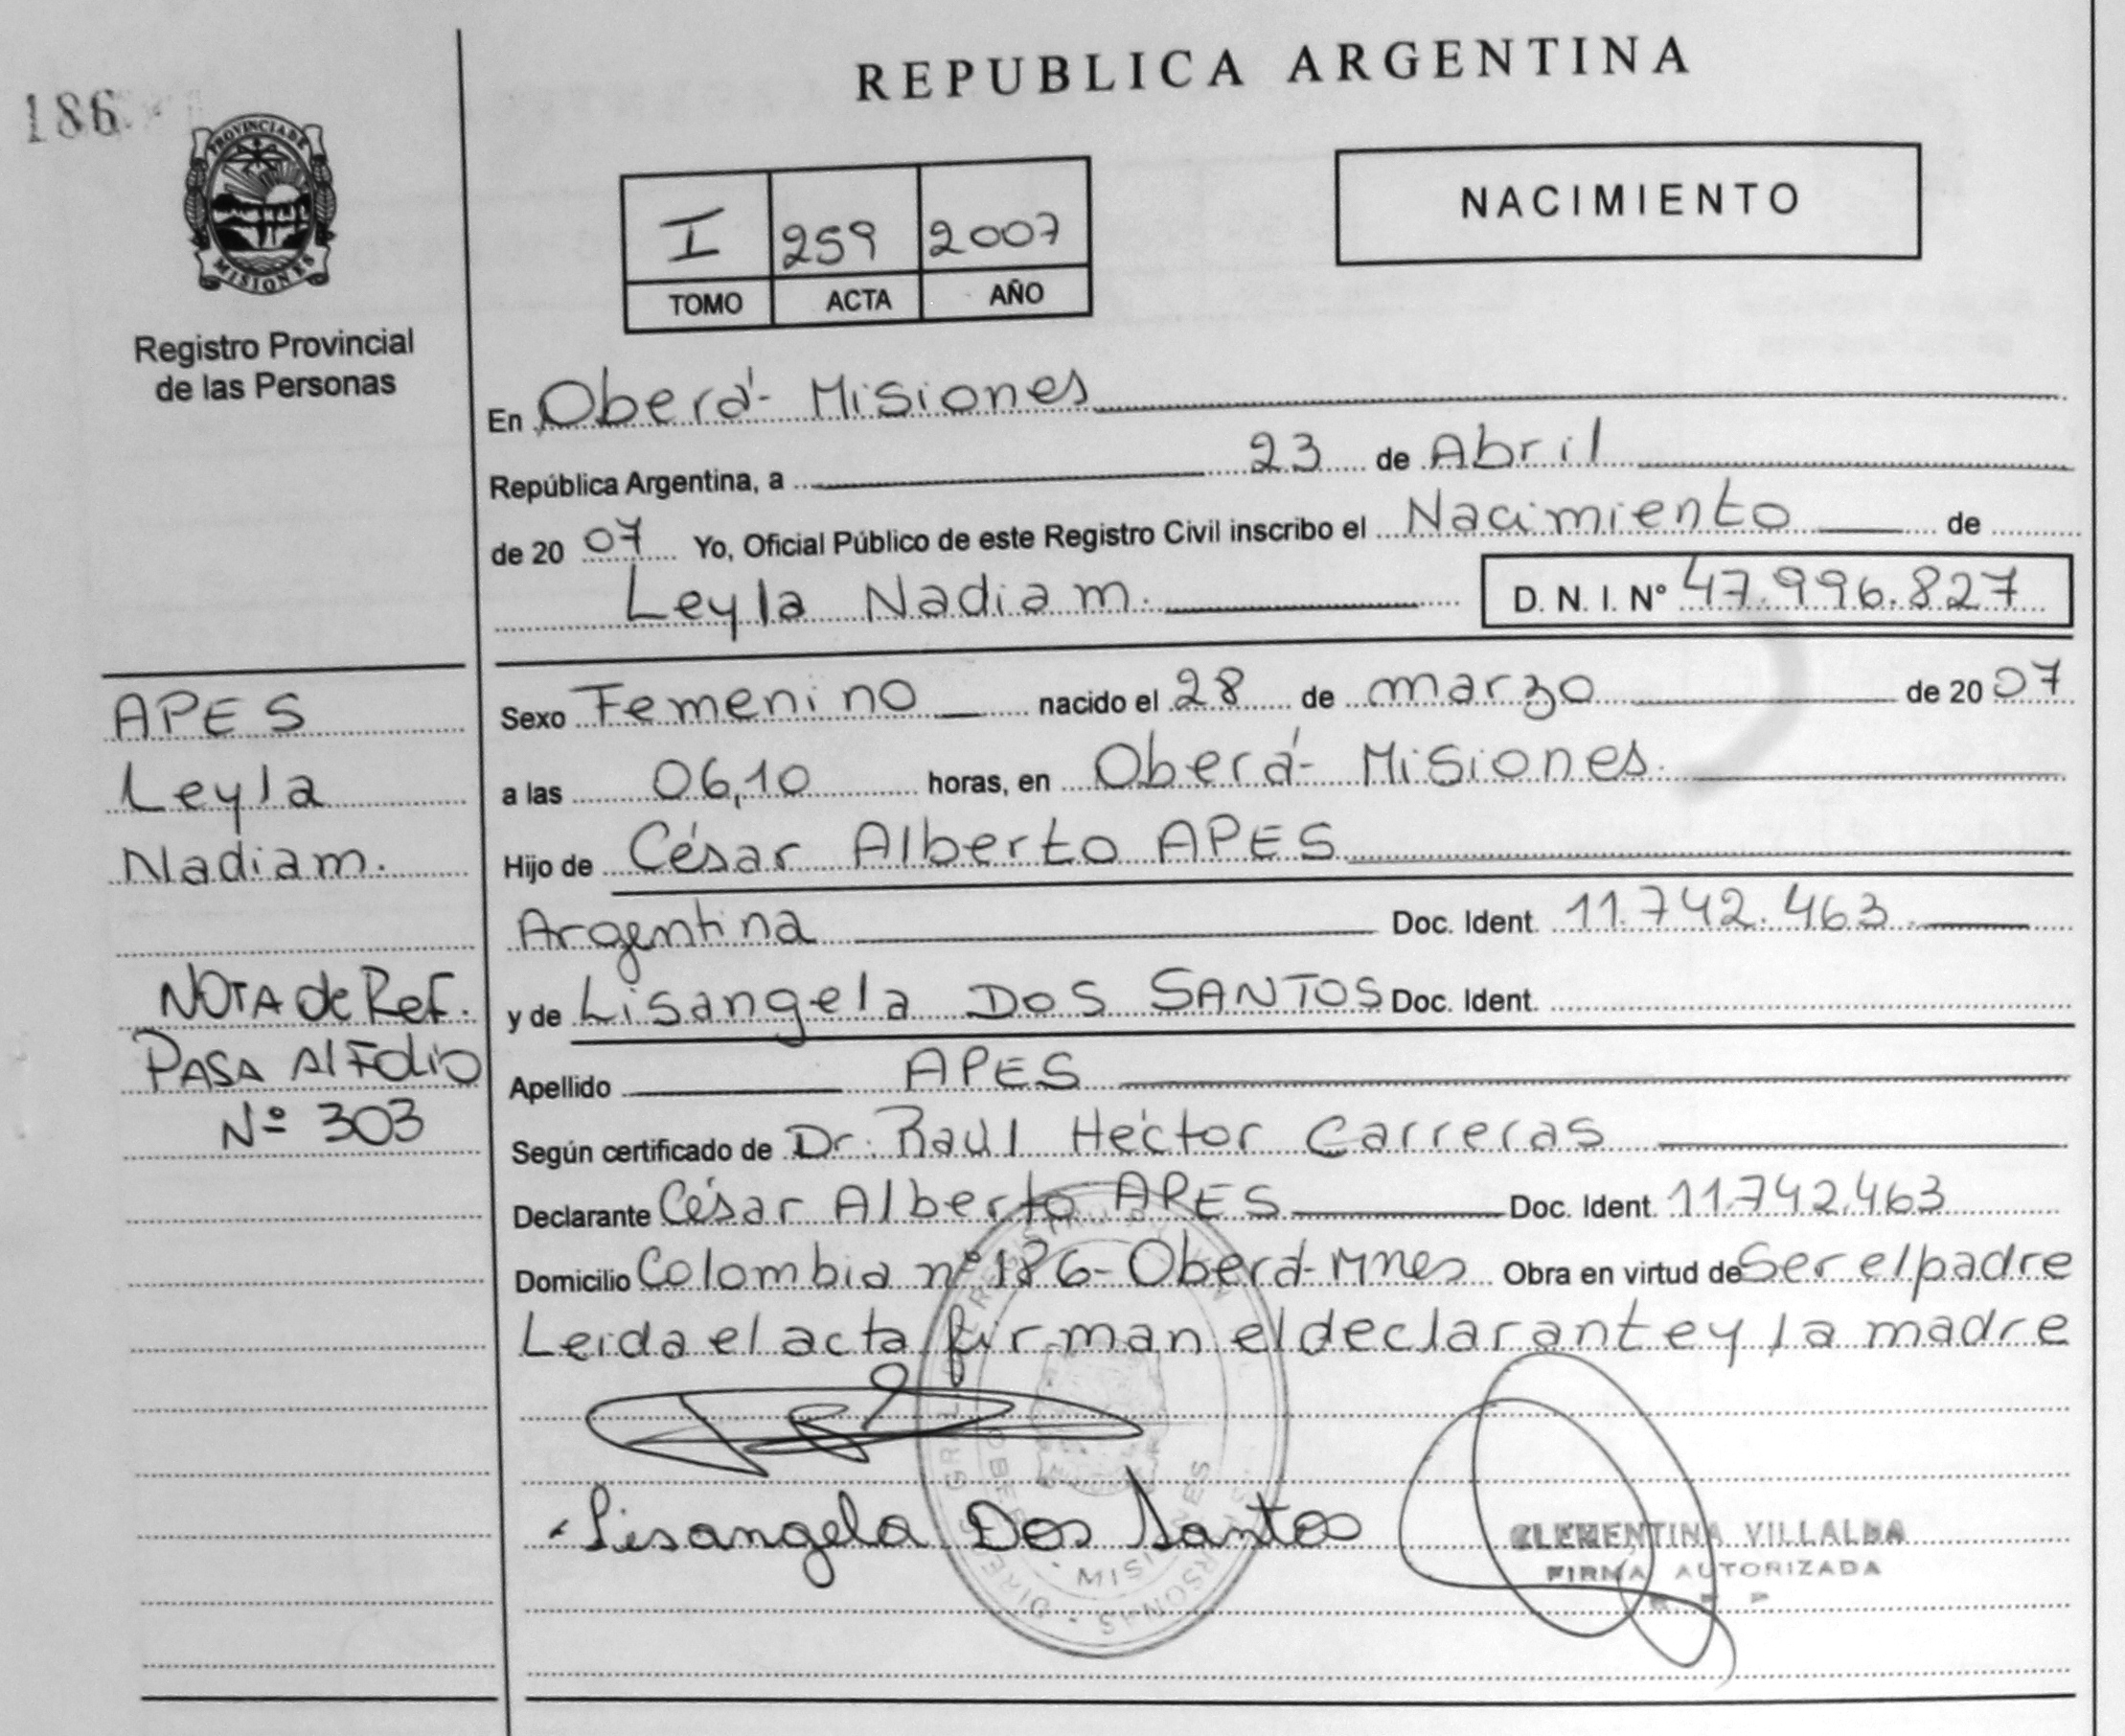 186
REPUBLICA ARGENTINA
PROVINCIA DE
MISIONES
Registro Provincial
de las Personas
I 259 2007
TOMO ACTA AÑO
NACIMIENTO
En Oberá- Misiones
República Argentina, a 23 de Abril
de 20 07 Yo, Oficial Público de este Registro Civil inscribo el Nacimiento de
Leyla Nadiam. D. N. I. Nº 47.996.827
APES
Leyla
Nadiam.
NOTA de Ref.
PASA Al Folio
Nº 303
Sexo Femenino nacido el 28 de marzo de 20 07
a las 06,10 horas, en Oberá- Misiones.
Hijo de César Alberto APES
Argentina Doc. Ident. 11.742.463.
y de Lisangela DOS SANTOS Doc. Ident.
Apellido APES
Según certificado de Dr. Raúl Héctor Carreras
Declarante César Alberto APES Doc. Ident. 11.742.463
Domicilio Colombia nº 186- Oberá- Mnes Obra en virtud de Ser el padre
Leida el acta firman el declarante y la madre
Lisangela Dos Santos
CLEMENTINA VILLALBA
FIRMA AUTORIZADA
MISIONES